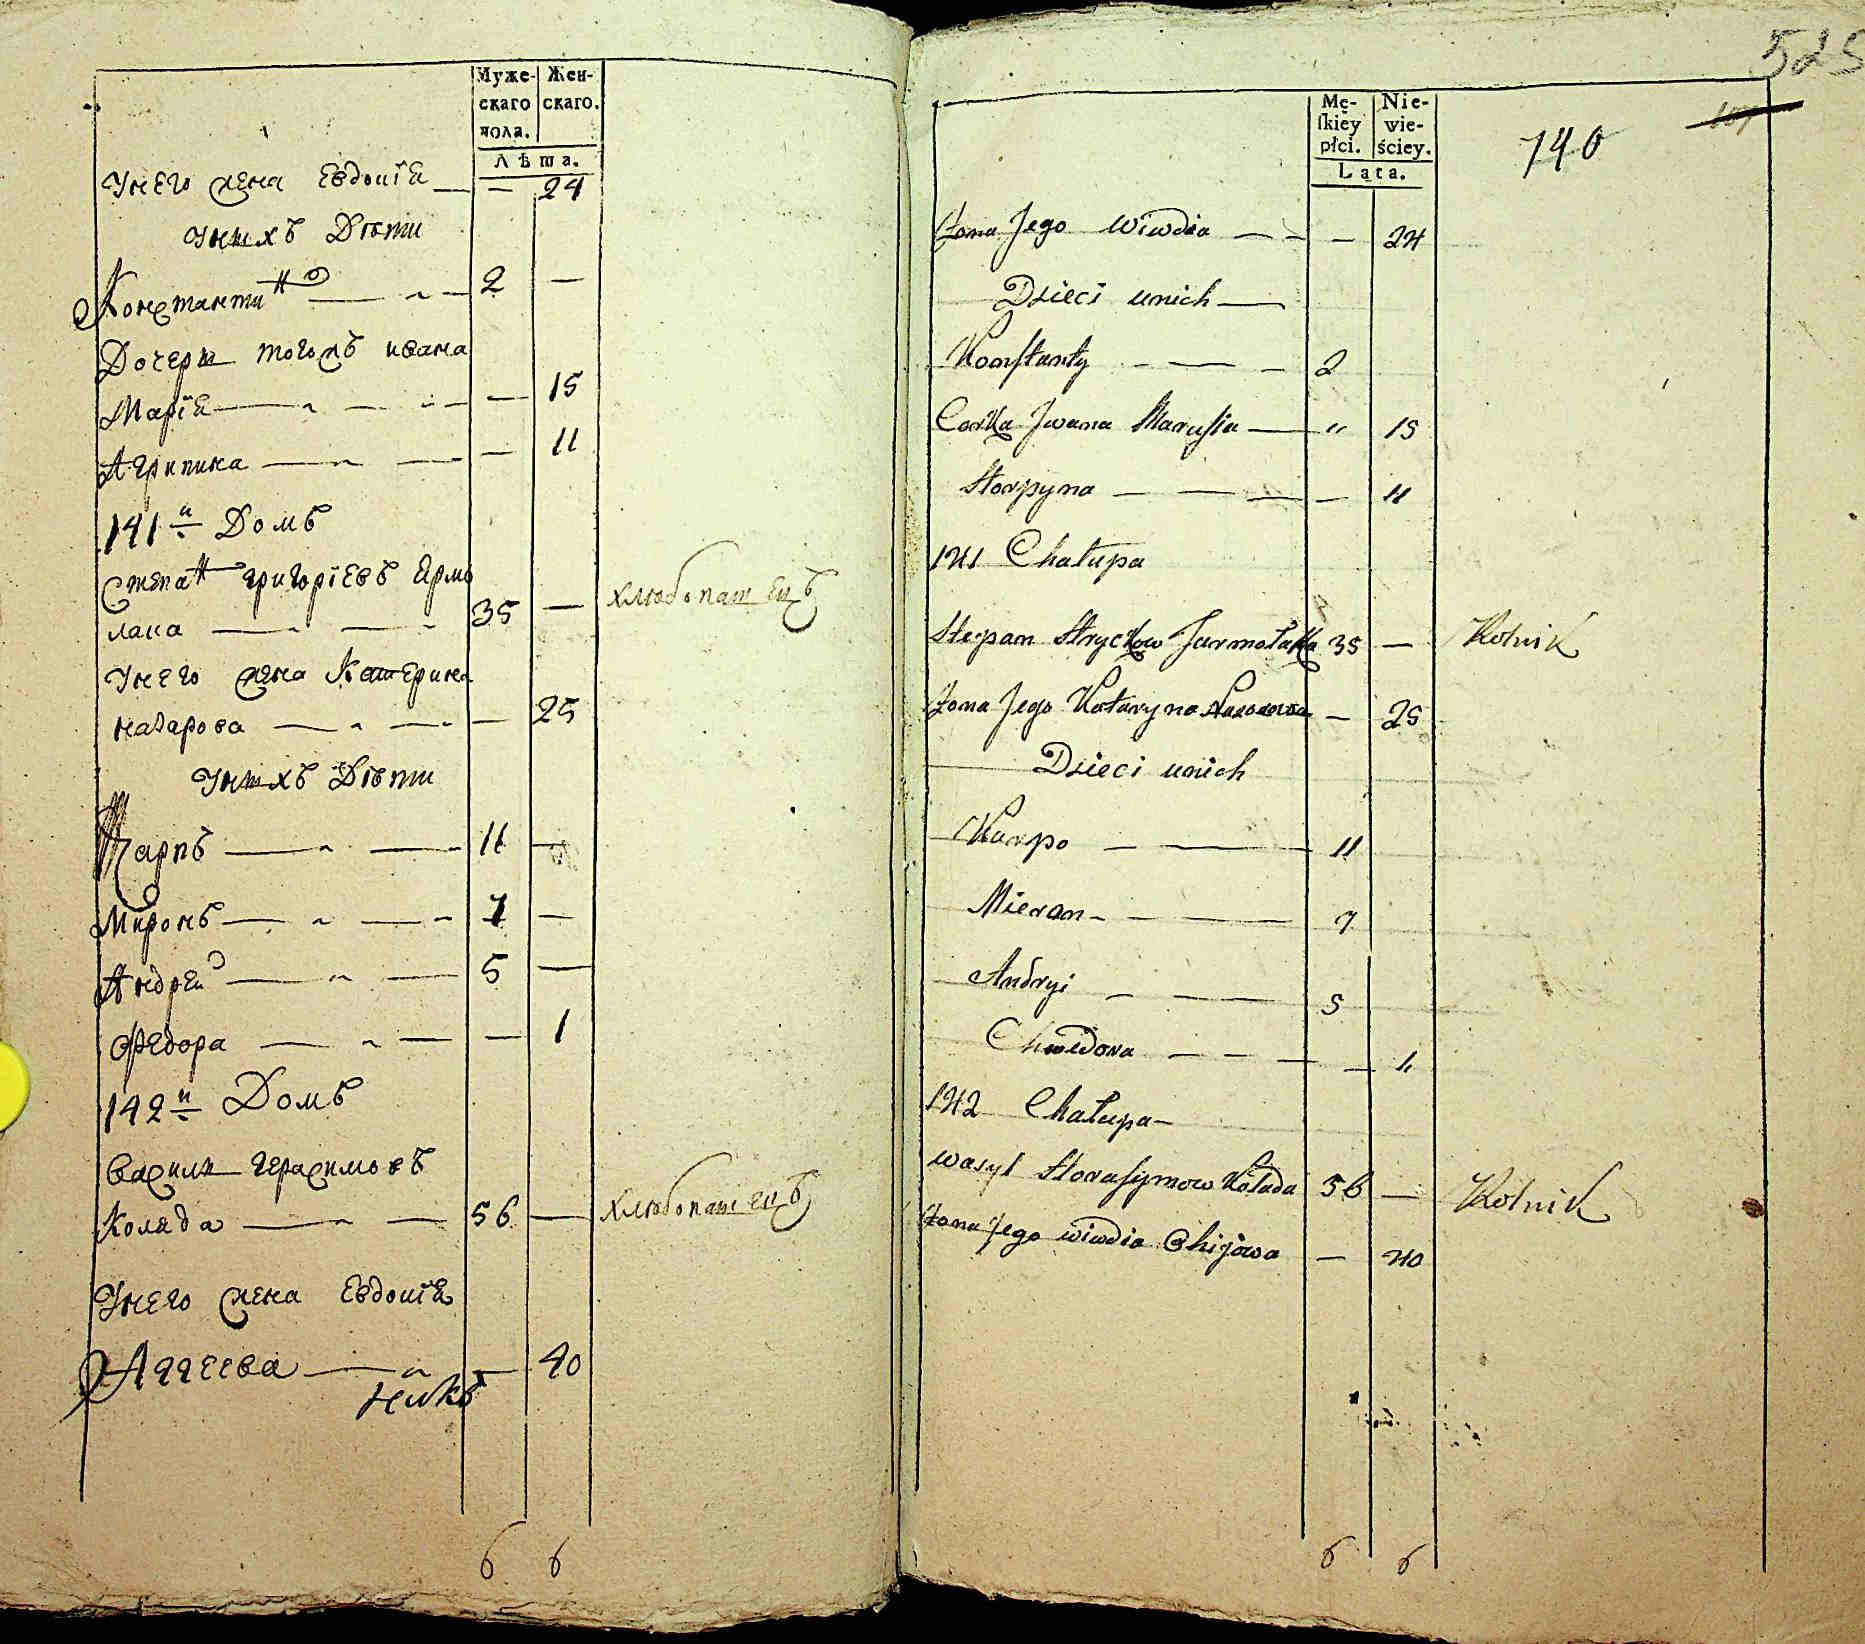 Муже-
скаго
пола.
Жен-
скаго.
Лѣта.
Унего жена Евдокїя — — 24
Унихъ Дѣти
Константин — 2 —
Дочери тогожъ ивана
Марїя — — 15
Агрипина — — 11
141й Домъ
Степан григорїевъ Ярмо
лака — 35 — хлѣбопашецъ
Унего жена Катерина
назарова — — 25
Унихъ Дѣти
Карпъ — 11 —
Миронъ — 7 —
Андрей — 5 —
Федора — — 1
142й Домъ
Василий герасимовъ
Коляда — 56 — хлѣбопашецъ
Унего жена Евдокїя
Аггеева — — 40
6 6
525
Mę-
ſkiey
płci.
Nie-
wie-
ściey.
Lata.
140
Żona Jego Wiwdia — — — 24
Dzieci unich —
Konſtanty — — — 2
Corka Jwana Maruſia — " 15
Horpyna — — — — 11
141 Chałupa
Stepan Hryckow Jarmołaka 35 — Rolnik
Żona Jego Kataryna Nazarowa — 25
Dzieci unich
Karpo — — 11
Mieron — — — 7
Andryi — — — 5
Chwedora — — — — 1
142 Chałupa —
Wasyl Horaſymow Kolada 56 — Rolnik
Żona Jego wiwdia Ohijowa — 40
6 6